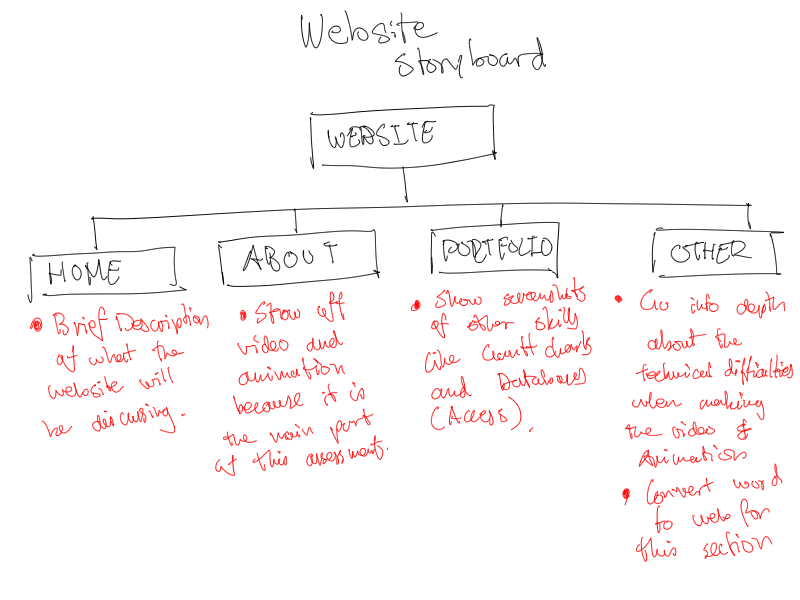 Website
Storyboard
WEBSITE
HOME
• Brief Description
of what the
website will
be discussing.
ABOUT
• Show off
video and
animation
because it is
the main part
of this assessment.
PORTFOLIO
• Show screenshots
of other skills
like Gantt charts
and Databases
(Access).
OTHER
• Go into depth
about the
technical difficulties
when making
the video &
Animation
• Convert word
to web for
this section